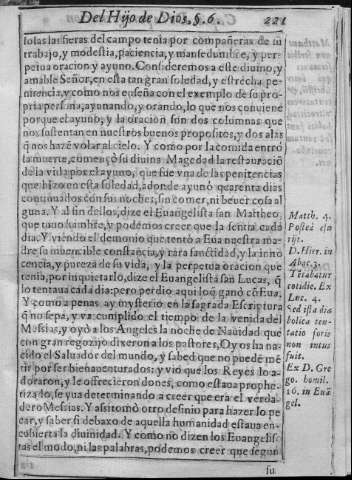 Del Hijo de Dios, §. 6. 221
solas las fieras del campo tenia por compañeras de su
trabajo, y modestia, paciencia, y mansedumbre, y per
petua oracion y ayuno. Consideremos a este diuino, y
amable Señor, en esta tan gran soledad, y estrecha pe-
nitencia, y como nos enseña con el exemplo de su pro
pria persona, ayunando, y orando, lo que nos conuiene
porque el ayuno, y la oracion son dos columnas que
nos sustentan en nuestros buenos propositos, y dos alas
q̃ nos hazẽ volar al cielo. Y como por la comida entrò
la muerte, començò su diuina Magestad la restauraciõ
de la vida por el ayuno, que fue vna de las penitencias
que hizo en esta soledad, adonde ayunò quarenta dias
continuados con sus noches, sin comer, ni beuer cosa al
guna. Y al fin dellos, dize el Euangelista san Mattheo,
que tuuo hambre, y podemos creer que la sentia cada
dia. Y viendo el demonio que tentò a Eua nuestra ma-
dre su inuencible constancia, y rara sanctidad, y la inno
cencia, y pureza de su vida, y la perpetua oracion que
tenia, por inquietarlo, dize el Euangelista san Lucas, q̃
lo tentaua cada dia: pero perdio aqui lo q̃ ganò cõ Eua.
Y como a penas ay mysterio en la sagrada Escriptura
q̃ no sepa, y va cumplido el tiempo de la venida del
Messias, y oyò a los Angeles la noche de Nauidad que
con gran regozijo dixeron a los pastores, Oy os ha na-
cido el Saluador del mundo, y sabed que no puede mẽ
tir por ser bienauenturados: y viò que los Reyes lo a-
doraron, y le offrecieron dones, como estaua prophe-
tizado, se yua determinando a creer que era el verda-
dero Messias. Y assi tomò otro desinio para hazer lo pe
car, y saber si debaxo de aquella humanidad estaua en-
cubierta la diuinidad. Y como no dizen los Euangelis-
tas el modo, ni las palabras, podemos creer que segun
su
Matth. 4.
Postea esu
rijt.
D. Hier. in
Abac. 3.
Tẽtabatur
cotidie. Ex
Luc. 4.
Sed ista dia
bolica ten-
tatio foris
non intus
fuit.
Ex D. Gre
go. homil.
16. in Euã
gel.